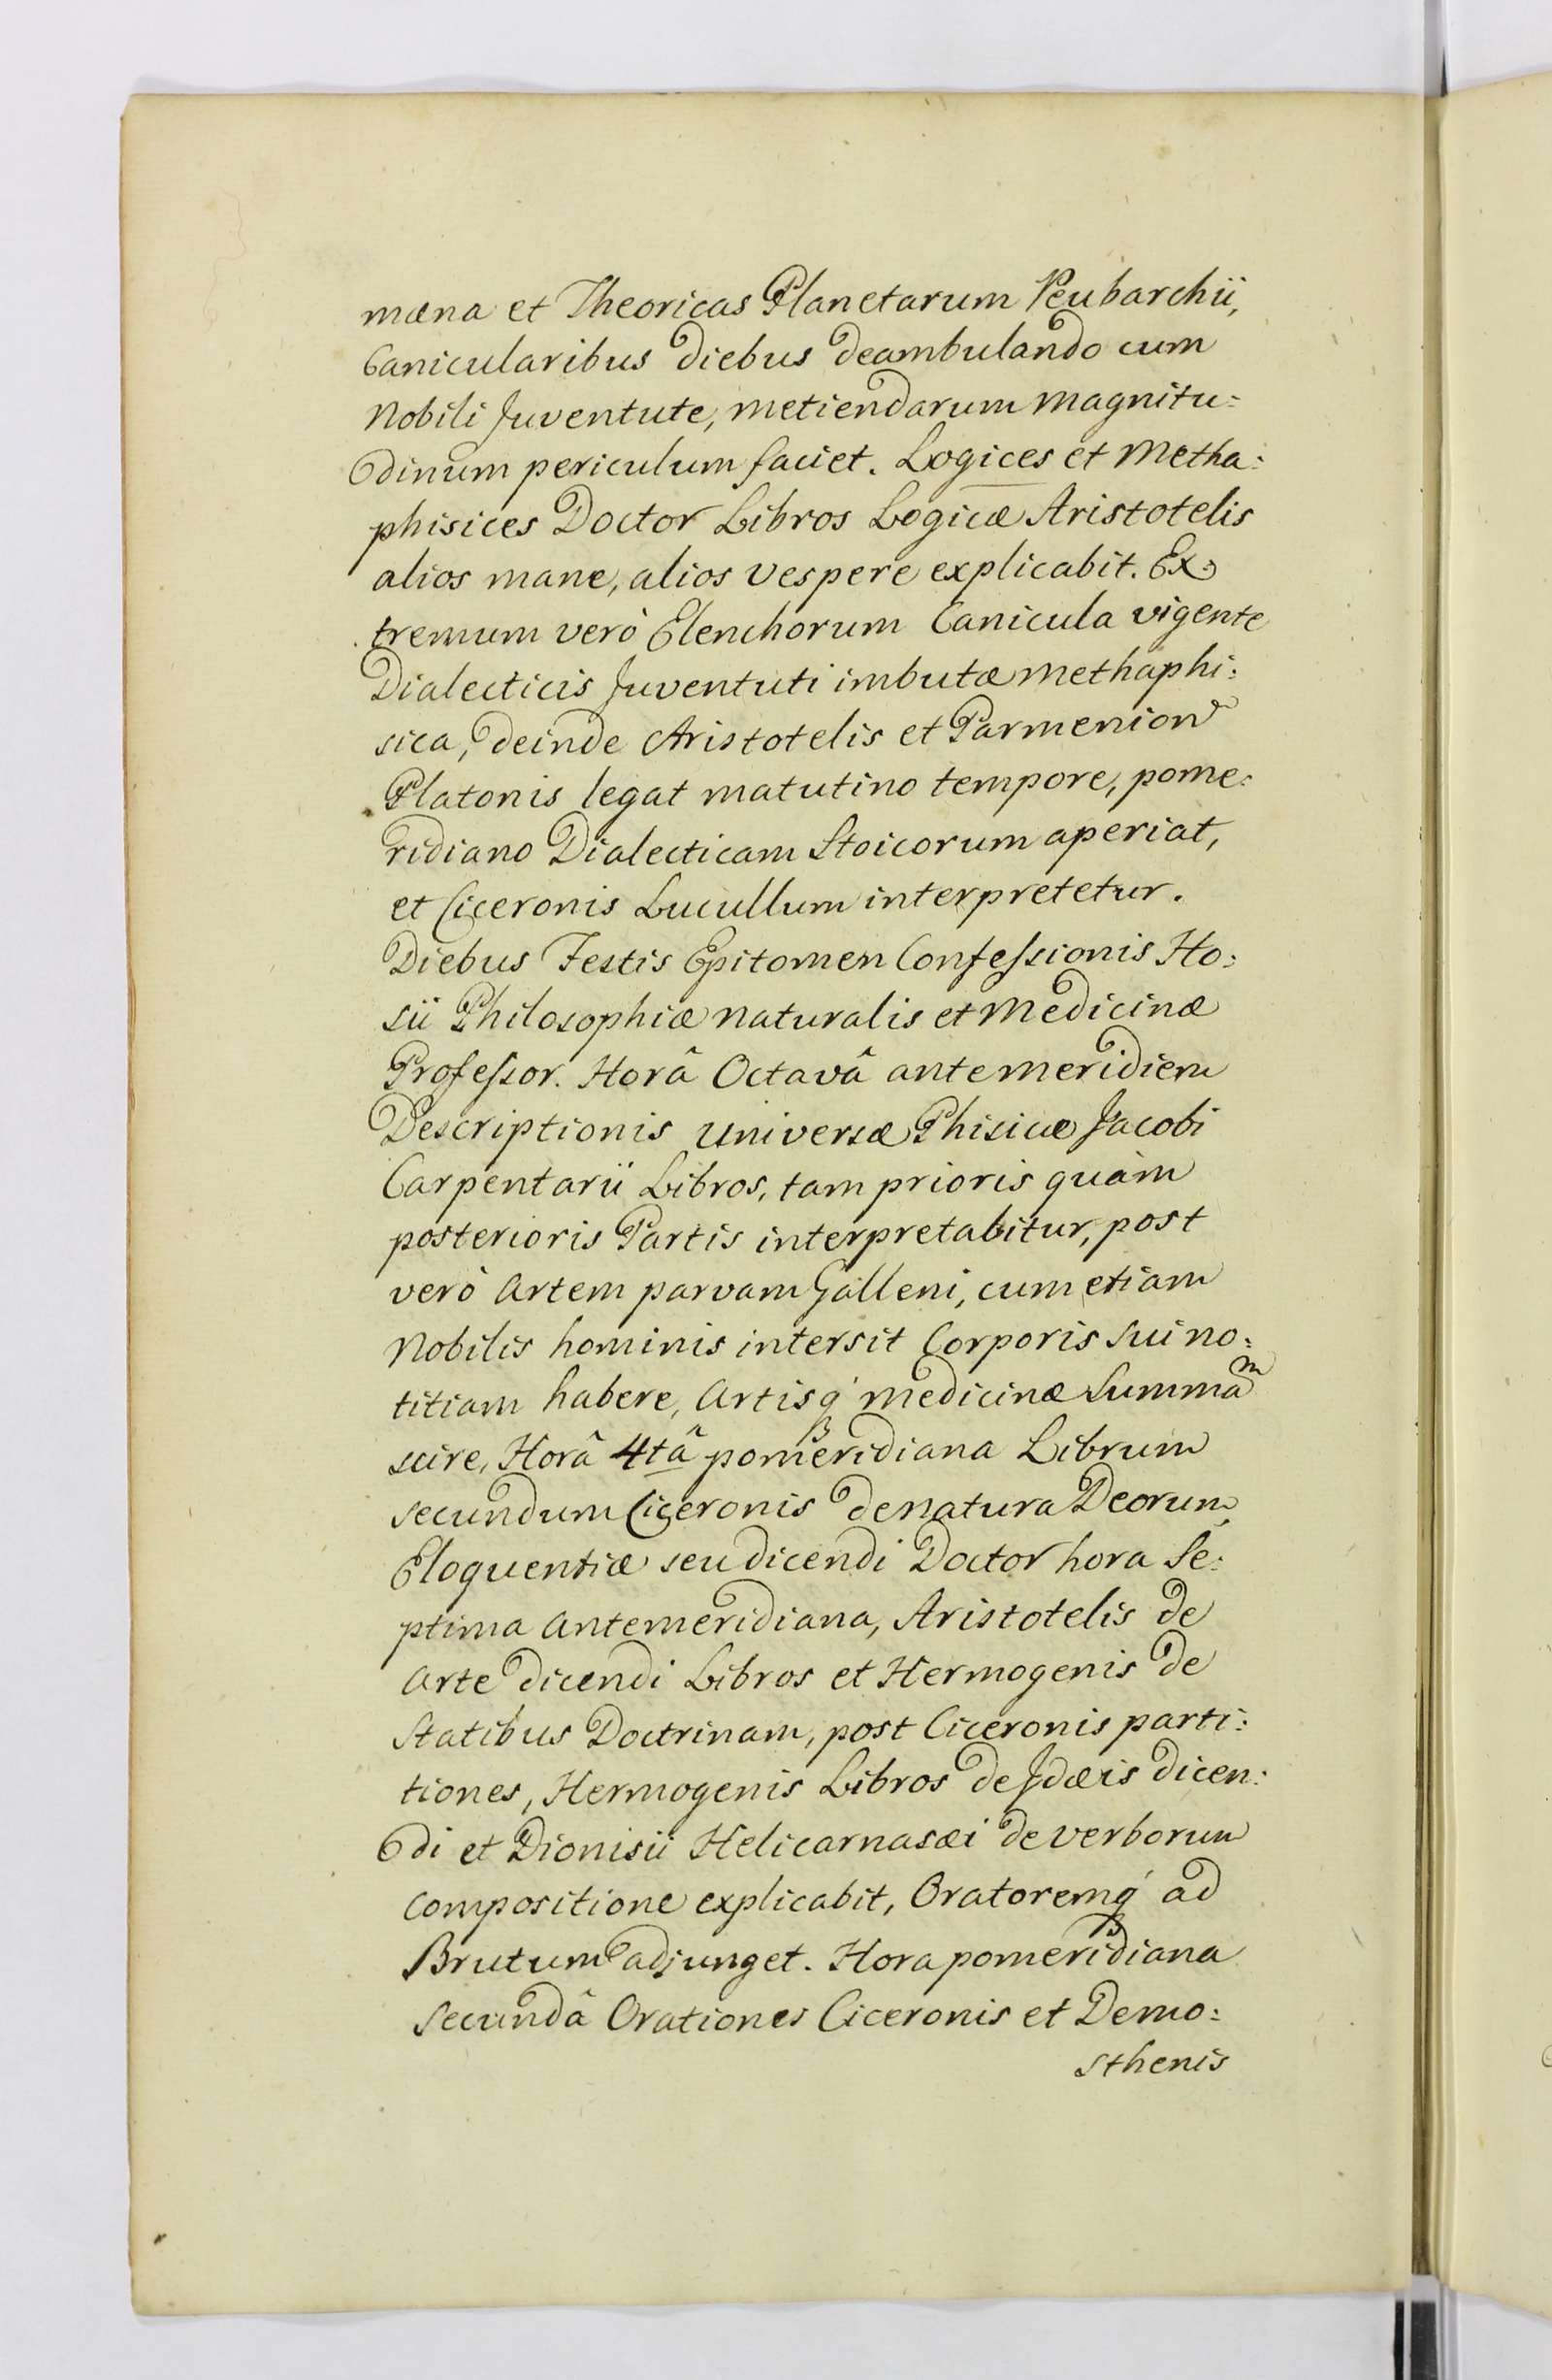 mæna et Theoricas Planetarum Peubarchii,
Canicularibus diebus deambulando cum
Nobili Juventute, metiendarum magnitu=
dinum periculum faciet. Logices et Metha=
phisices Doctor Libros Logicæ Aristotelis
alios mane, alios vespere explicabit. Ex=
tremum verò Elenchorum Canicula vigente
Dialecticis Juventuti imbutæ methaphi=
sica, deinde Aristotelis et Parmenion
Platonis legat matutino tempore, pome=
ridiano Dialecticam Stoicorum aperiat,
et Ciceronis Lucullum interpretetur.
Diebus Festis Epitomen Confeſsionis Ho=
sii Philosophiæ naturalis et Medicinæ
Profeſsor. Horâ Octavâ antemeridiem
Descriptionis universæ Phisicæ Jacobi
Carpentarii Libros, tam prioris quàm
posterioris Partis interpretabitur, post
verò Artem parvam Galleni, cum etiam
Nobilis hominis intersit Corporis sui no=
titiam habere, Artisq́ medicinæ Summam
scire, Horâ 4tâ pomeridiana Librum
secundum Ciceronis de natura Deorum,
Eloquentiæ seu dicendi Doctor hora Se=
ptima antemeridiana, Aristotelis de
Arte dicendi Libros et Hermogenis de
Statibus Doctrinam, post Ciceronis parti=
tiones, Hermogenis Libros de Jdæis dicen=
di et Dionisii Helicarnasæi de verborum
compositione explicabit, Oratoremq́ ad
Brutum adjunget. Hora pomeridiana
Secundâ Orationes Ciceronis et Demo=
sthenis